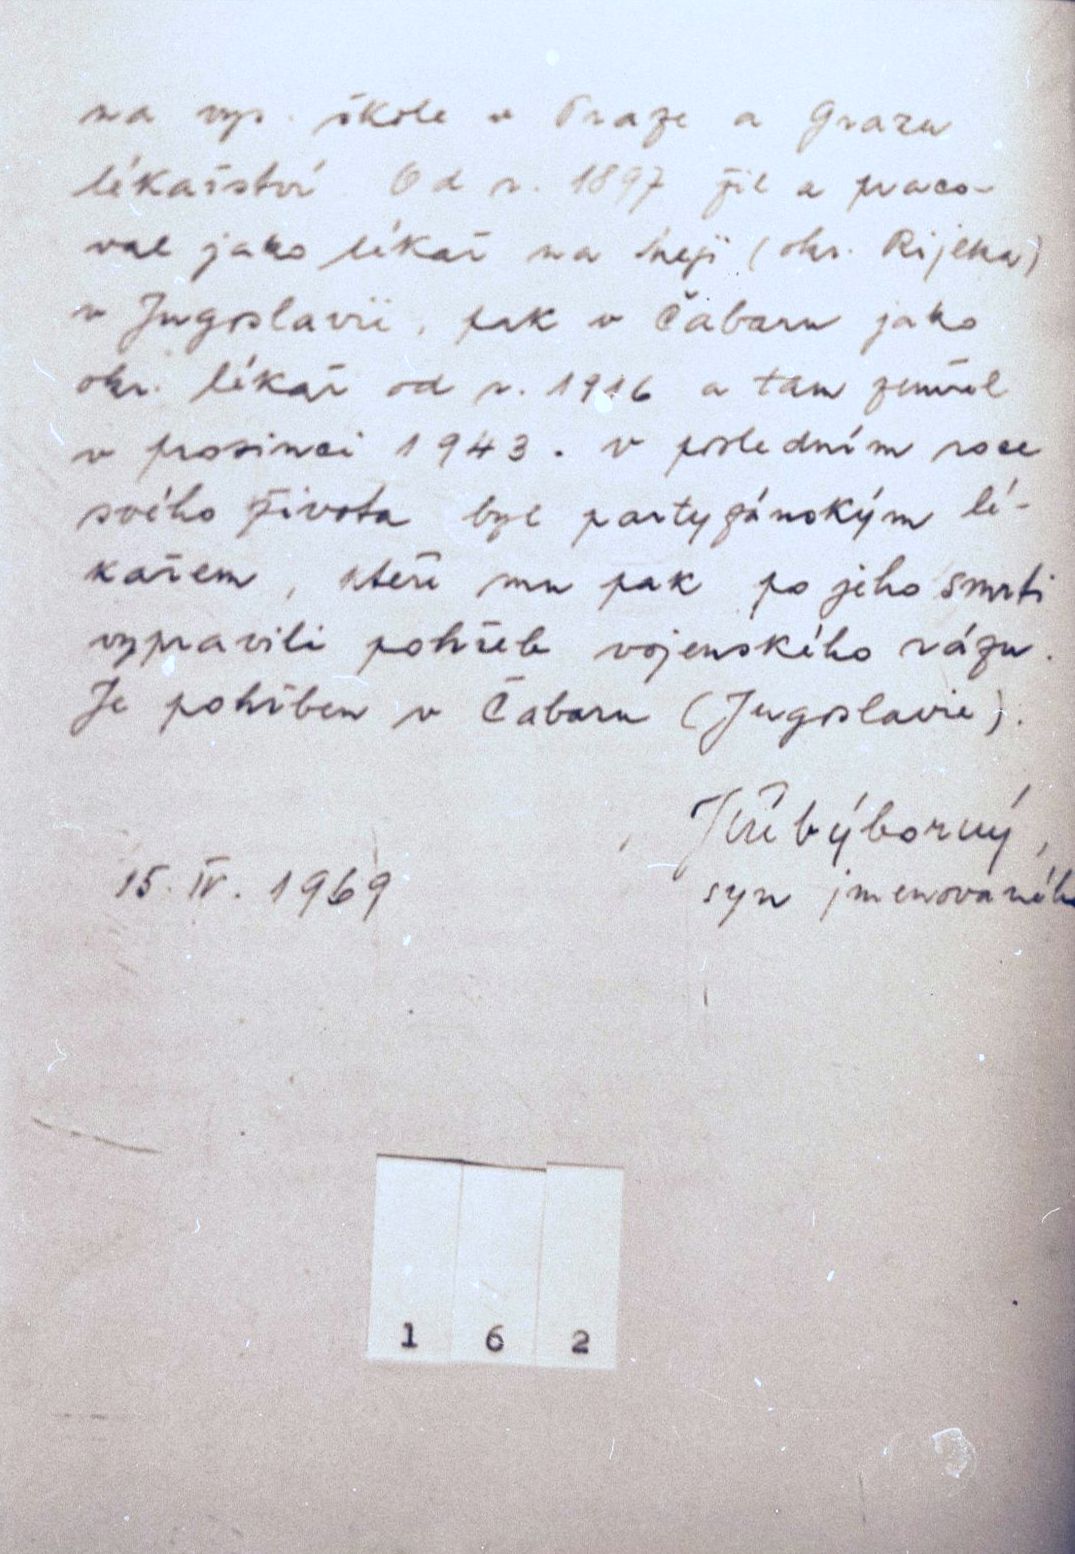 na vys. škole v Praze a Grazu
lékařství Od r. 1897 žil a praco-
val jako lékař na (okr. Rijeka)
v Jugoslavii, pak v Čabaru jako
okr. lékař od r. 1916 a tam zemřel
v prosinci 1943. v posledním roce
svého života byl partyzánským lé-
kařem, kteří mu pak po jeho smrti
vypravili pohřeb vojenského rázu.
Je pohřben v Čabaru (Jugoslavie).
15. IV. 1969
syn jmenovaného
1 6 2